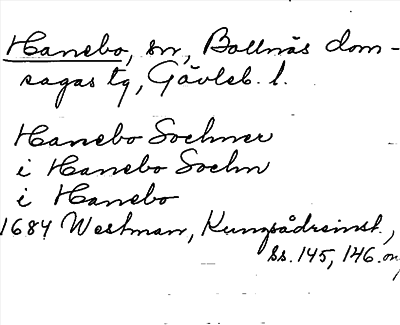 Hanebo, sn, Bollnäs dom-
sagas tg, Gävleb. l.
Hanebo Sochner
i Hanebo Sochn
i Hanebo
1684 Westman, Kungsådreinst.,
ss. 145, 146.